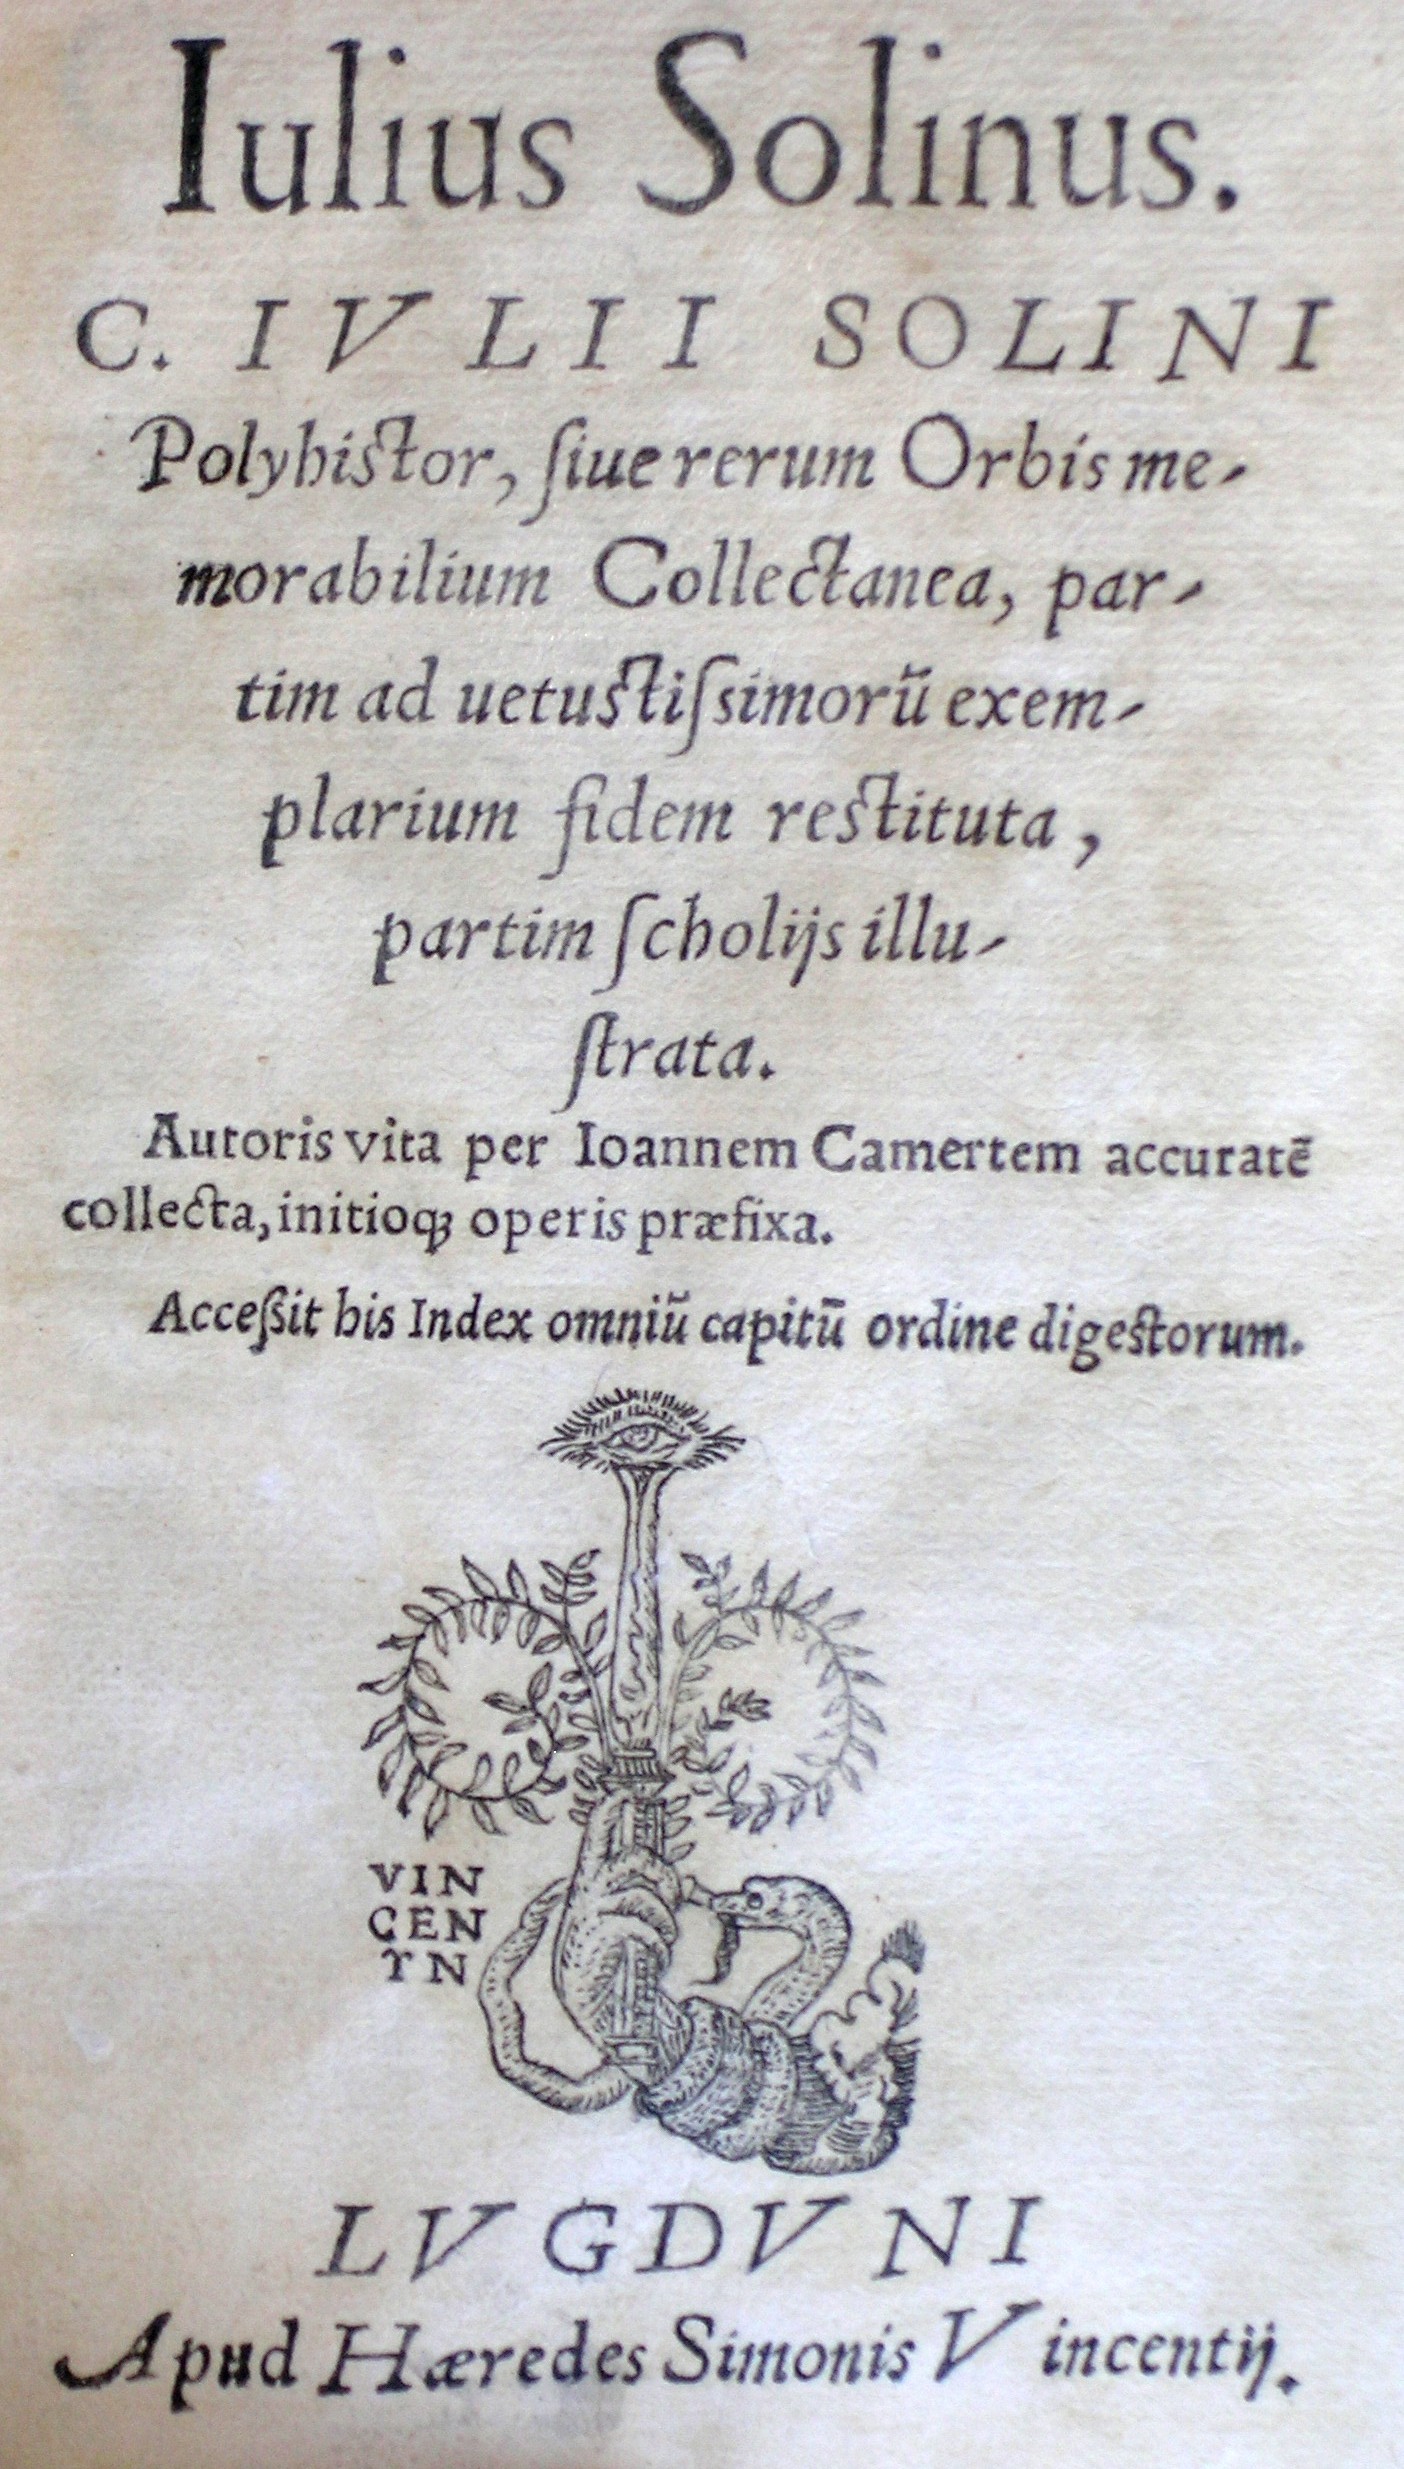 Iulius Solinus.
C. IVLII SOLINI
Polyhistor, ſiue rerum Orbis me-
morabilium Collectanea, par-
tim ad uetustiſsimorũ exem-
plarium fidem restituta,
partim ſcholijs illu-
ſtrata.
Autoris vita per Ioannem Camertem accuratē
collecta, initioq́; operis præfixa.
Acceſsit his Index omniũ capitũ ordine digestorum.
VIN
CEN
TN
LVGDVNI
Apud Hæredes Simonis Vincentij.